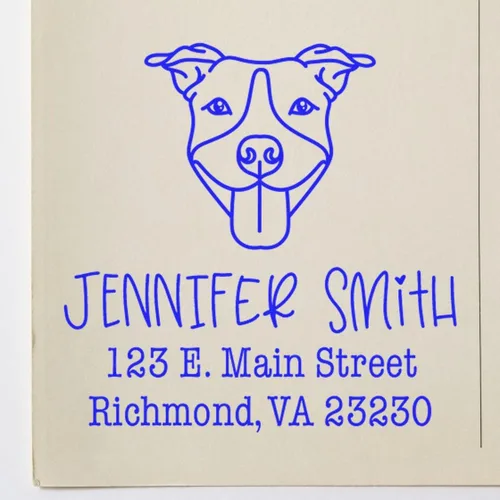 JENNIFER SMitH
123 E. Main Street
Richmond, VA 23230